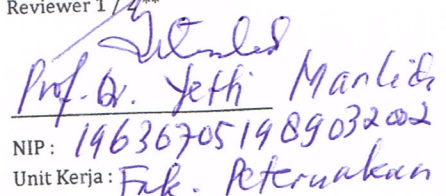 Reviewer 1 / 2**
Prof. Dr. Yetti Marlida
NIP : 196367051989032002
Unit Kerja : Fak. Peternakan